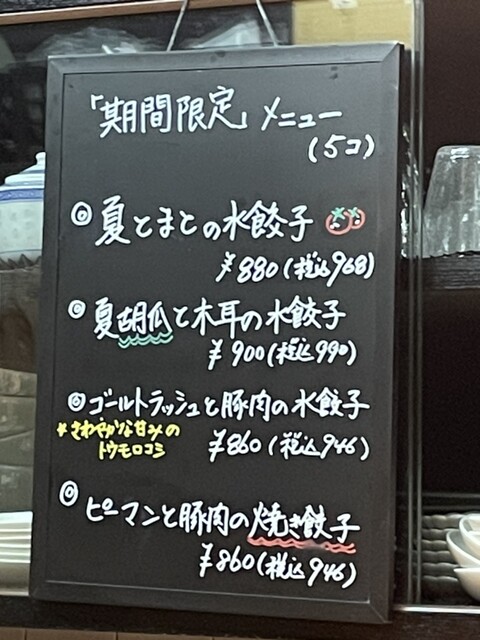 「期間限定」メニュー
(5コ)
◎夏とまとの水餃子
¥880(税込968)
◎夏胡瓜と木耳の水餃子
¥900(税込990)
◎ゴールドラッシュと豚肉の水餃子
*さわやかな甘みの
トウモロコシ
¥860(税込946)
◎ピーマンと豚肉の焼き餃子
¥860(税込946)